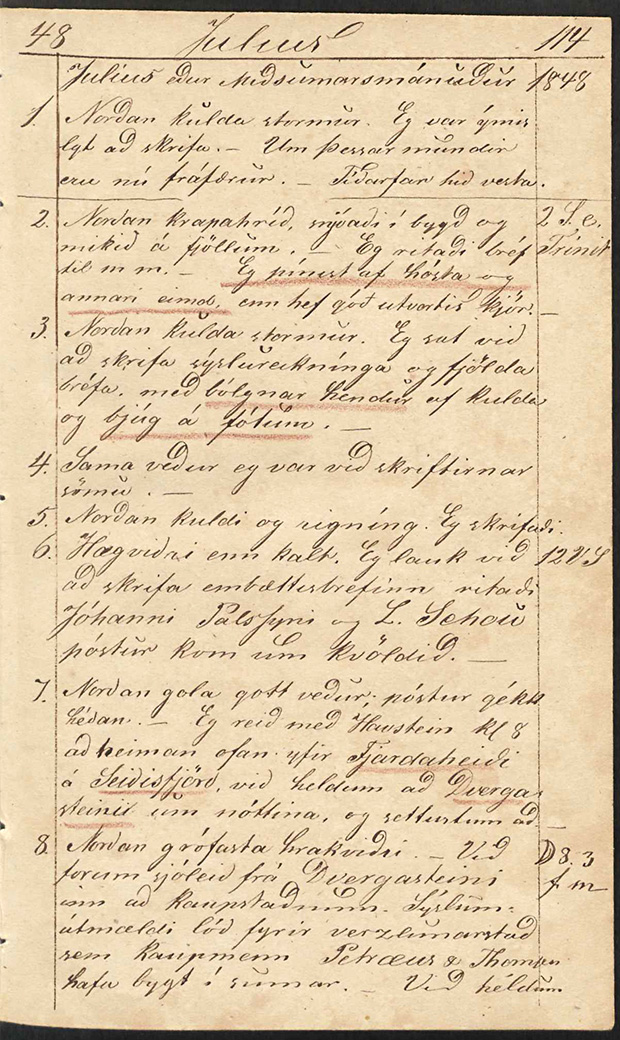 48 Julius 114
Julius eður Miðsumarsmánuður 1848
1. Norðan kulda stormur. Eg var ýmis
legt að skrifa. — Um þessar mundir
eru nú fráfærur. — Tíðarfar hið versta.
2. Norðan krapahríð, snjóaði í bygð og 2 S. e.
mikið á fjöllum. — Eg ritaði bréf Trinit
til m m. — Eg pínist af hósta og
annari eimd, enn hef góð utvortis kjör. —
3. Norðan kulda stormur. Eg sat við
að skrifa sýslureikninga og fjölda
bréfa, með bólgnar hendur af kulda
og bjúg á fótum. —
4. Sama veður eg var við skriftirnar
sömu. —
5. Norðan kuldi og rigníng. Eg skrifaði.
6. Hægviðri enn kalt. Eg lauk við 12 V S
að skrifa embættisbréfinn ritaði
Jóhanni Pálssyni og L. Schou
póstur kom um kvöldið. —
7. Norðan gola gott veður; póstur gékk
héðan. — Eg reið með Havstein kl 8
að heiman ofan yfir Fjarðaheiði
á Seidisfjörð, við heldum að Dverga
steini um nóttina, og settustum að —
8. Norðan grófasta hrakviðri. — Við D 8. 3
forum sjóleið frá Dvergasteini f m
inn að kaupstaðnum. Sýslum:
útmældi lóð fyrir verzlunarstað
sem kaupmenn Petræus & Thomsen
hafa bygt í sumar. — Við héldum